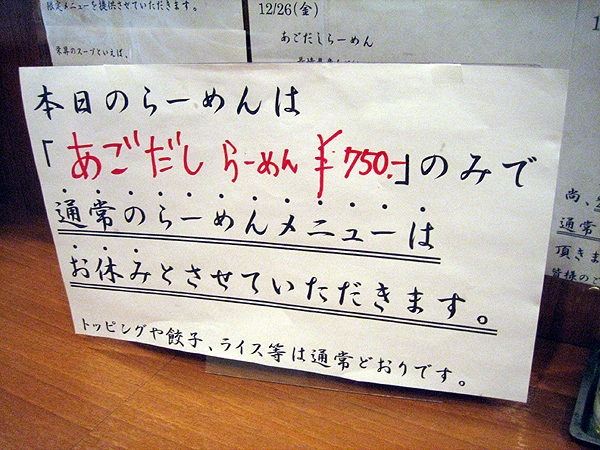 限定メニューを提供させていただきます。
12/26(金)
あごだしらーめん
本日のらーめんは
「あごだしらーめん ¥750-」のみで
通常のらーめんメニューは
お休みとさせていただきます。
トッピングや餃子、ライス等は通常どおりです。
尚、
通常
頂きま
皆様のご